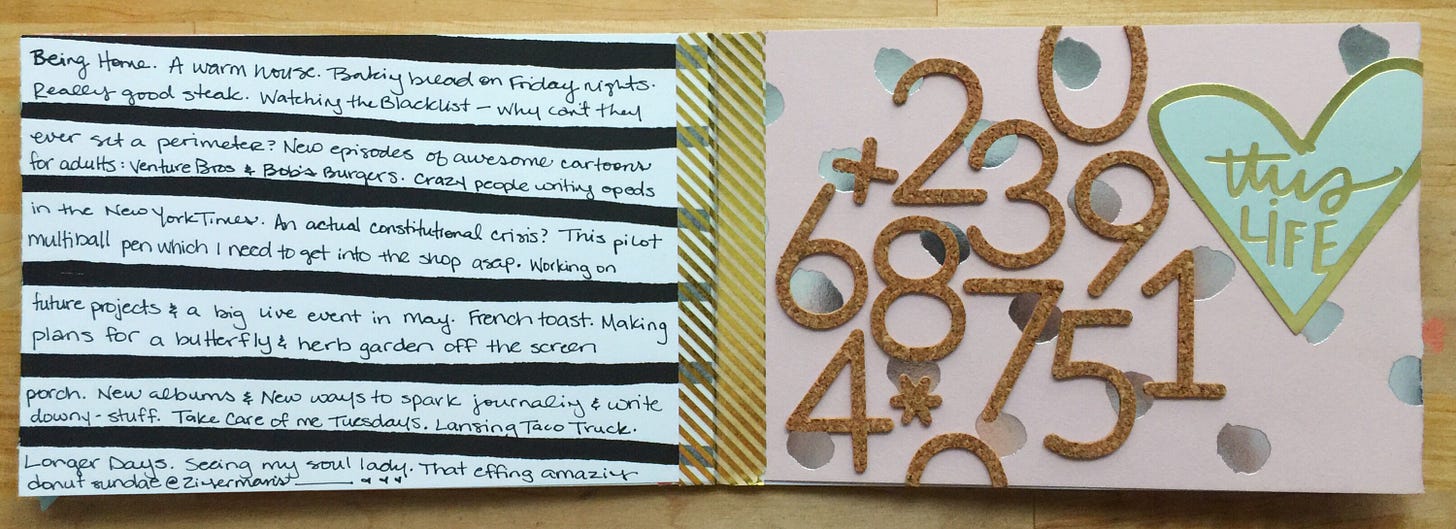 Being Home. A warm house. Baking bread on Friday nights.
Really good steak. Watching the Blacklist - why can't they
ever set a perimeter? New episodes of awesome cartoons
for adults: Venture Bros & Bob's Burgers. Crazy people writing opeds
in the New York Times. An actual constitutional crisis? This pilot
multiball pen which I need to get into the shop asap. Working on
future projects & a big live event in May. French toast. Making
plans for a butterfly & herb garden off the screen
porch. New albums & New ways to spark journaling & write
downy-stuff. Take Care of me Tuesdays. Lansing Taco Truck.
Longer Days. Seeing my soul lady. That effing amazing
donut sundae @
0
+ 2 3 9
6 8 7 5 1
4 *
this
LIFE